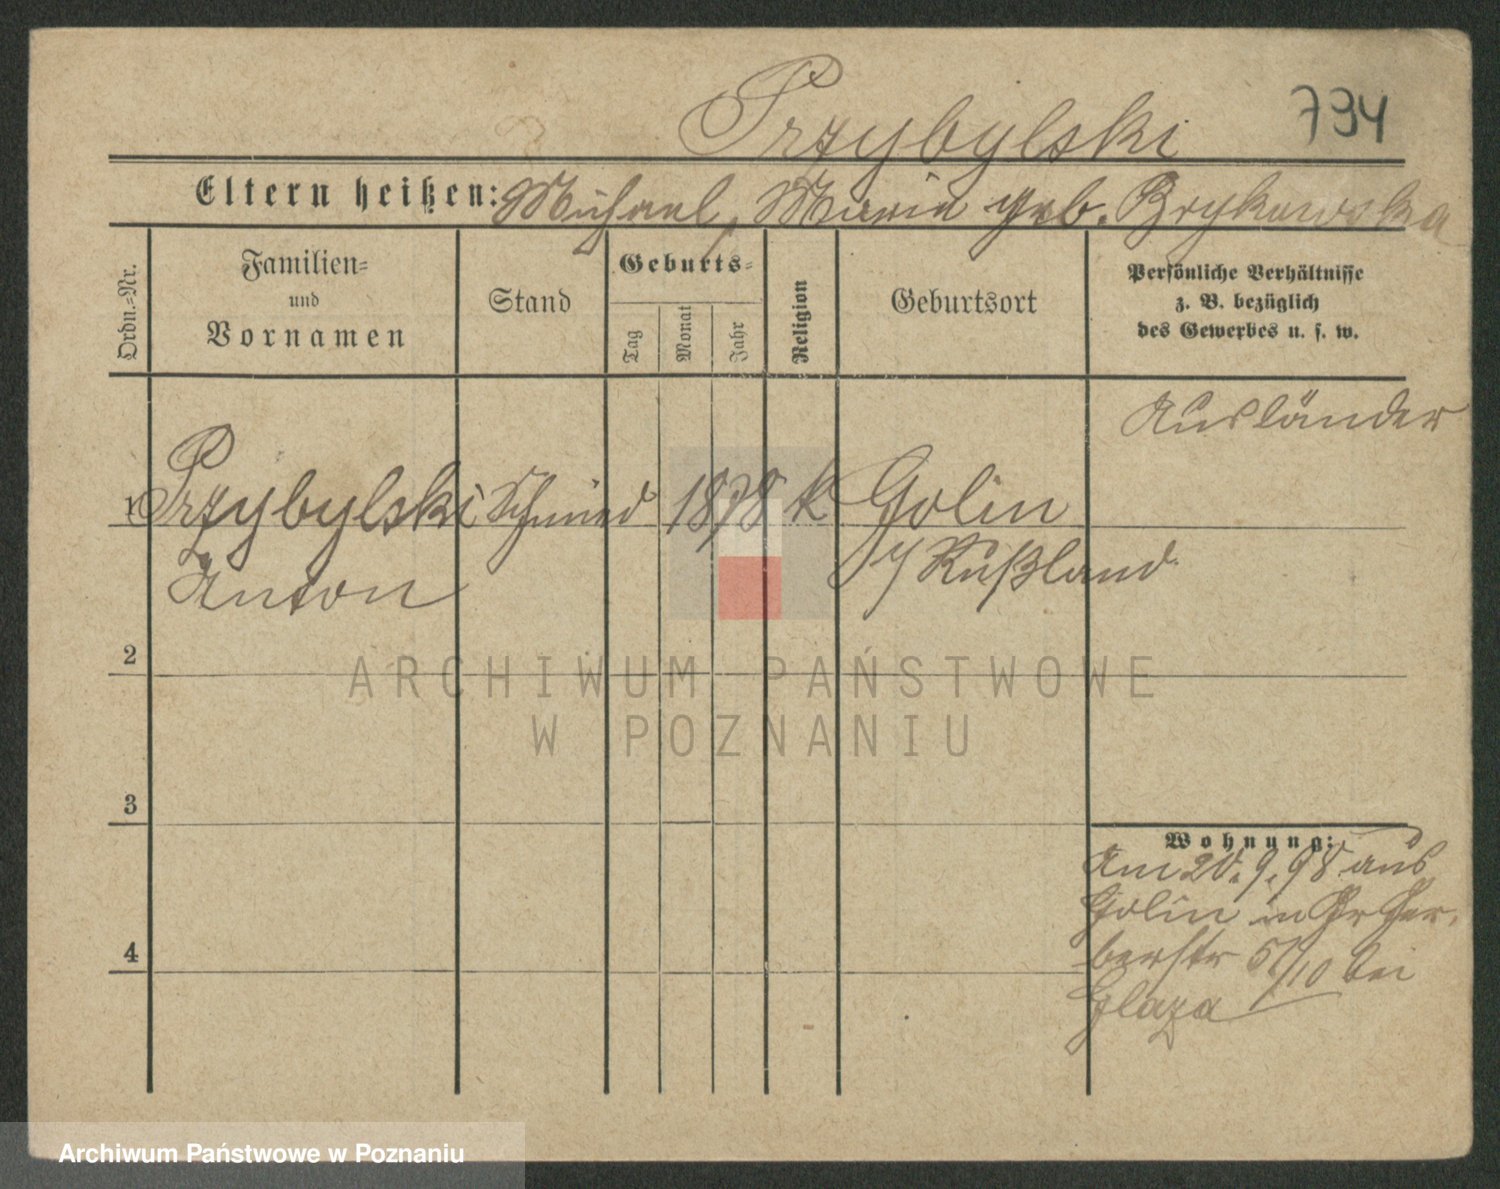 Przybylski
734
Eltern heißen: Michael, Maria geb. Brykowska
Ordn.=Nr.
Familien=
und
Vornamen
Stand
Geburts=
Tag
Monat
Jahr
Religion
Geburtsort
Persönliche Verhältnisse
z. B. bezüglich
des Gewerbes u. s. w.
Ausländer
1 Przybylski Schmied 1878 k Golin
Anton
i/ Rußland
2
3
4
Wohnung:
Am 20. 9. 98 aus
Golin in Gr Ger-
berstr 51/10 bei
Glaza
ARCHIWUM PAŃSTWOWE
W POZNANIU
Archiwum Państwowe w Poznaniu